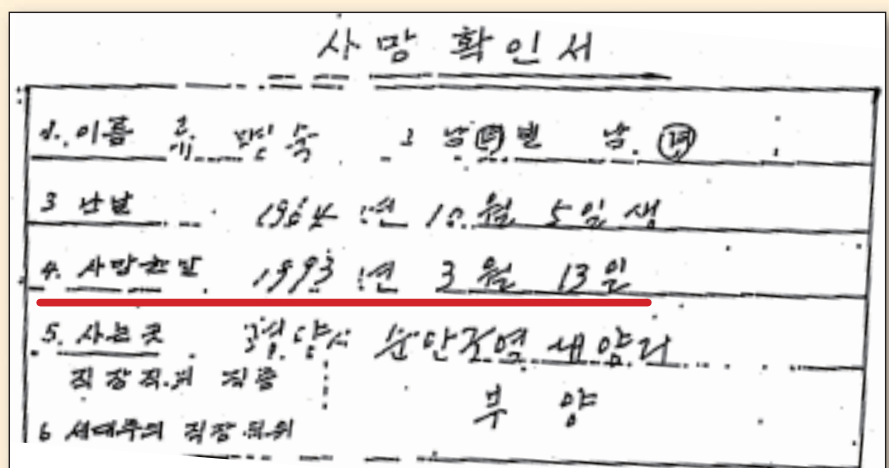 사망 확인서
1. 이름 류 명숙 2 남녀별 남. 녀
3 난날 1964년 10월 5일생
4. 사망한날 1993년 3월 13일
5. 사는곳 평양시 순안구역
직장직위 직종 부양
6 세대주의 직장직위